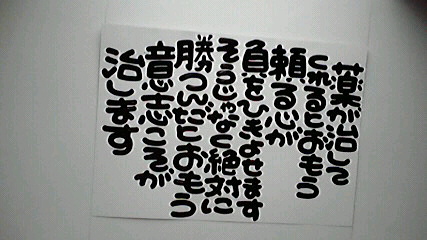 薬が治して
くれるとおもう
頼る心が
負をひきよせます
そうじゃなく絶対に
勝つんだとおもう
意志こそが
治します